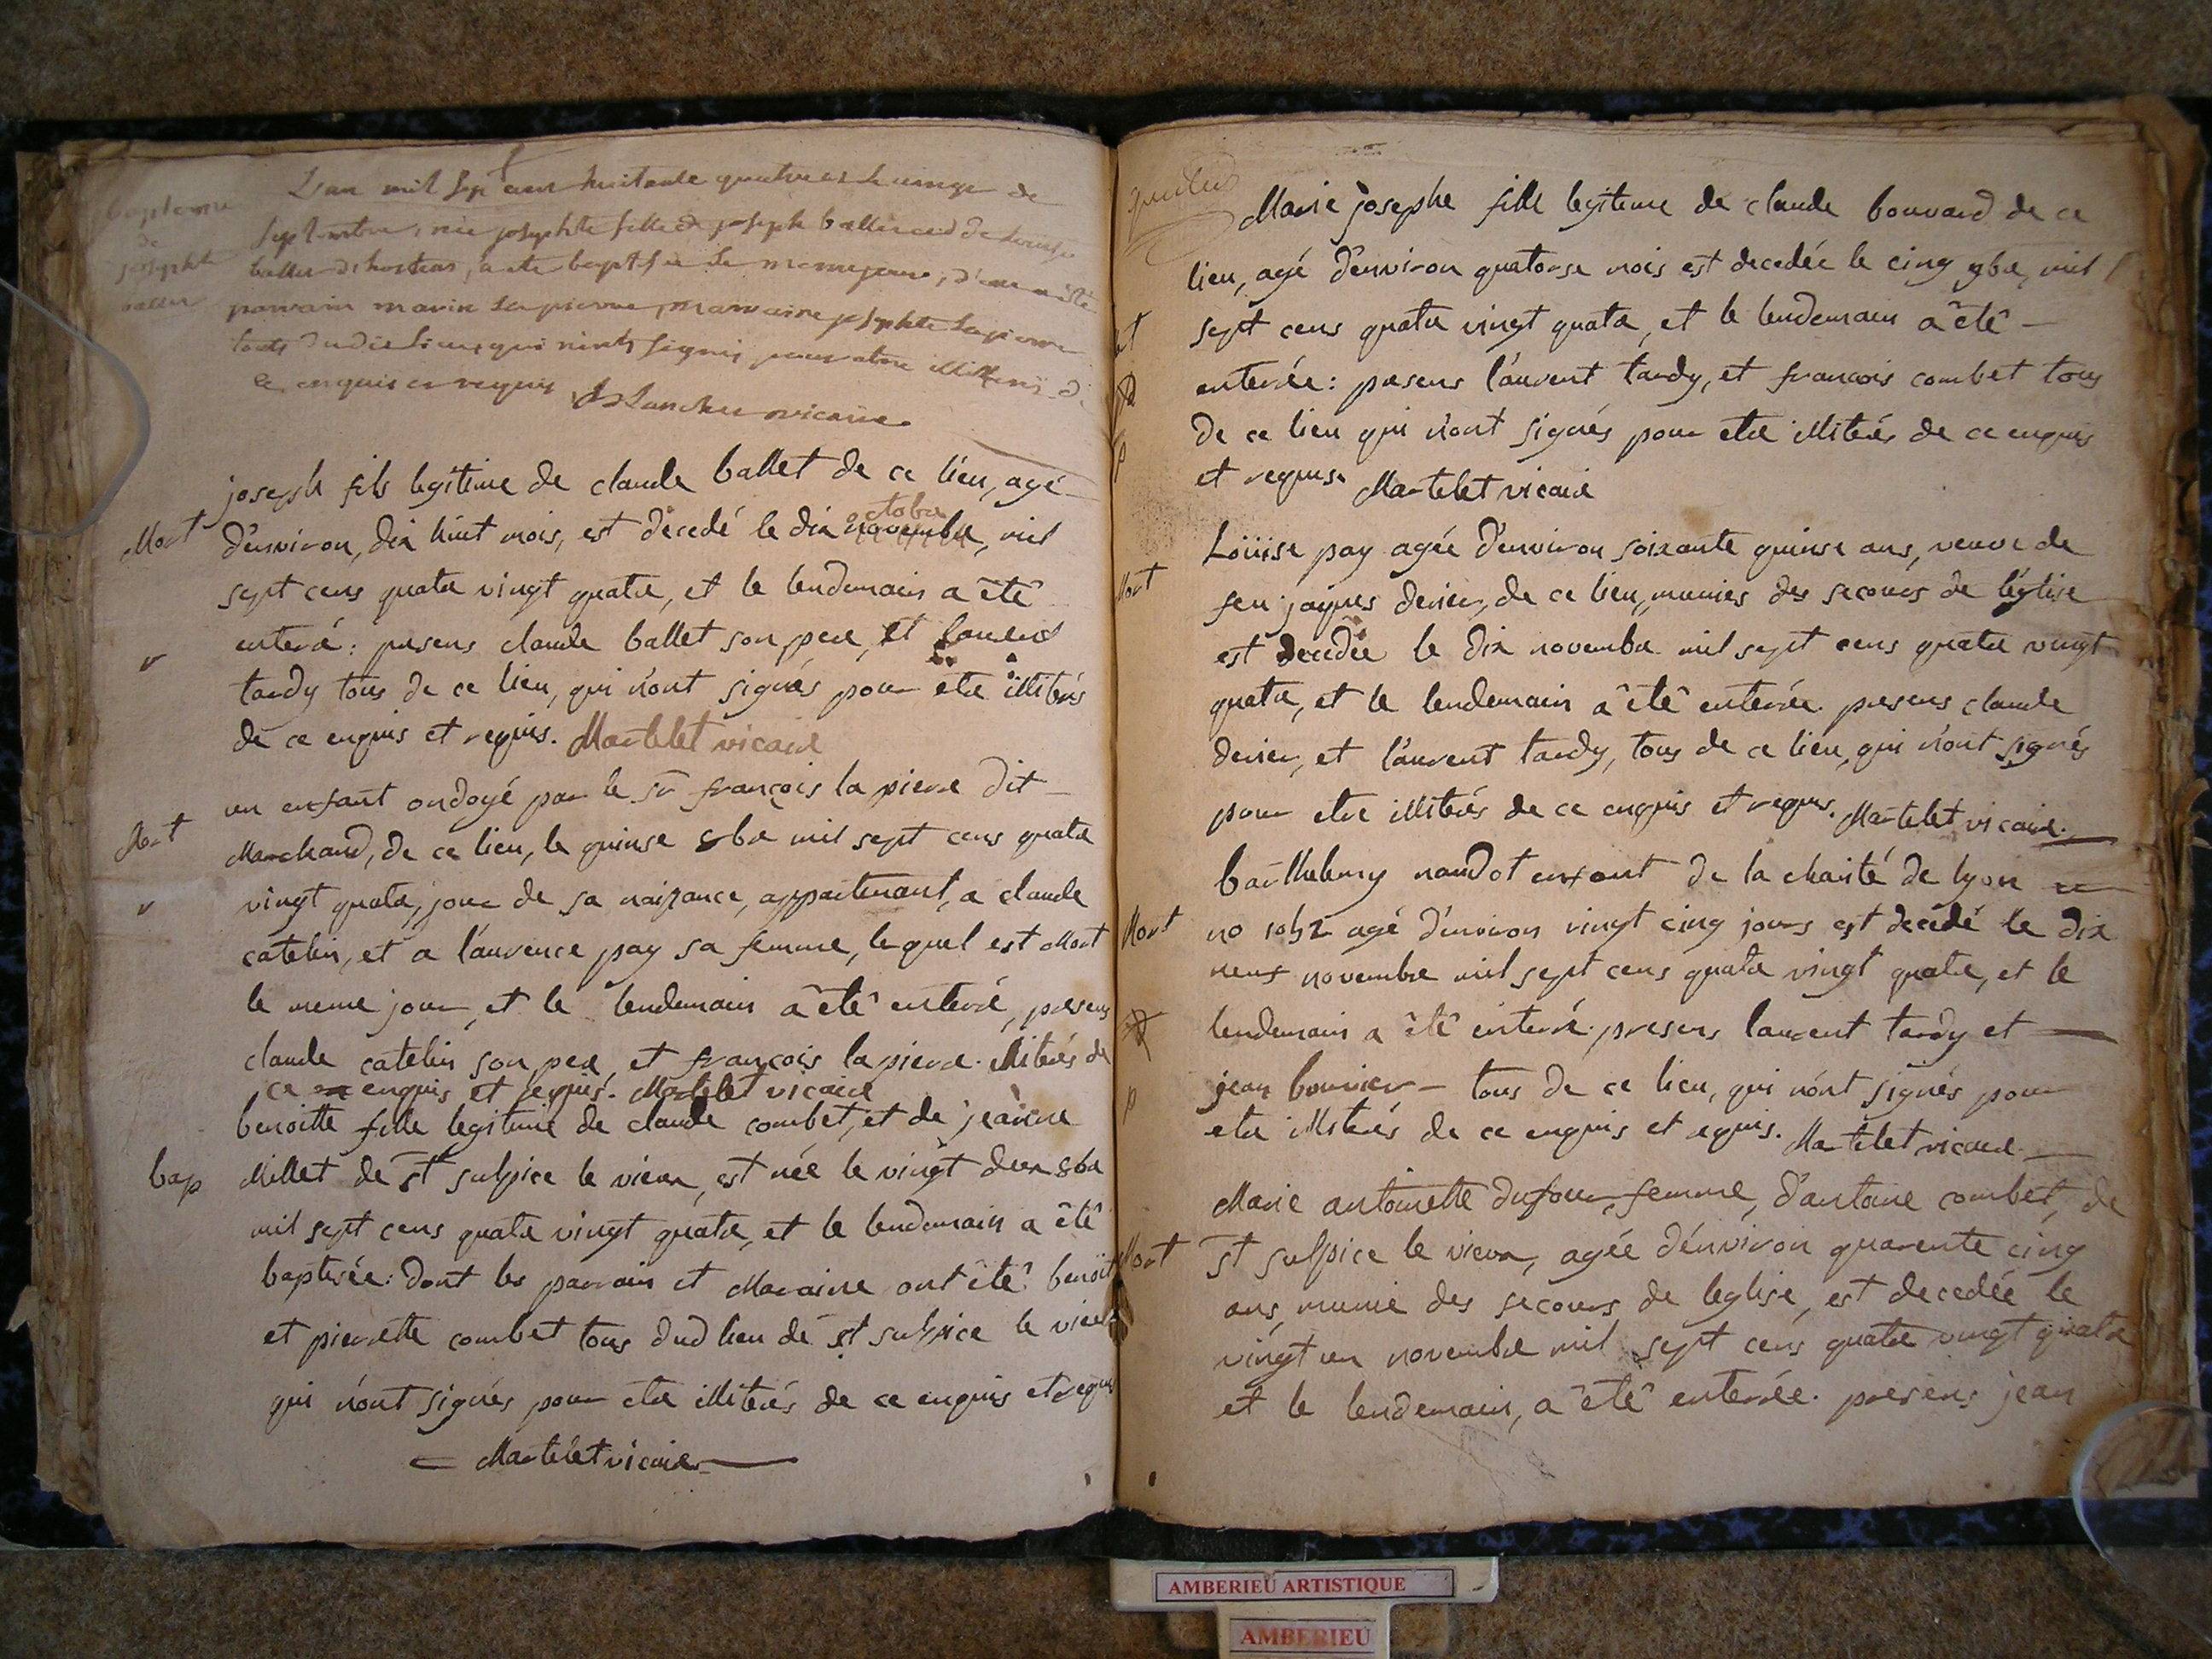 L'an mil sept cent huitante quatre et le onze de
septembre, née josephte fille de joseph ballet et de Louise
ballet d'hosteas, a ete baptisée le meme jour, d'icelle a été
parrain marin Lapierre, marraine josephte Lapierre
touts dudit lieu, qui n'ont signés pour etre illitterés de
ce enquis et requis vicaire
bapteme
de
josephte
ballet
joseph fils legitime de claude ballet de ce lieu, agé
Mort
d'environ, dix huit mois, est decedé le dix novembre, mil
octobre
sept cens quatre vingt quatre, et le lendemain a êtê
enteré: presens claude ballet son pere, et laurent
tardy tous de ce lieu, qui n'ont signés pour etre illiterés
de ce enquis et requis. Martelet vicaire
un enfant ondoyé par le sr françois la pierre dit
Mort
Marchand, de ce lieu, le quinse 8bre mil sept cens quatre
vingt quatre, jour de sa naissance, appartenant, a claude
catelin, et a l'aurence pay sa femme, lequel est Mort
le meme jour, et le lendemain a êtê enterré, presens
claude catelin son pere, et françois la pierre. illiterés de
ce enquis et requis. Martelet vicaire
benoitte fille legitime de claude combet, et de jeanne
bap
Millet de st sulpice le vieux, est née le vingt deux 8bre
mil sept cens quatre vingt quatre, et le lendemain a êtê
baptisée: dont les parrain et Maraine ont êtê: benoit
et pierrette combet tous dud lieu de st sulpice le vieux
qui n'ont signés pour etre illiterés de ce enquis et requis
Martelet vicaire
Marie josephe fille legitime de claude bouvard de ce
lieu, agé d'environ quatorse mois est decedée le cinq 9bre, mil
sept cens quatre vingt quatre, et le lendemain a êtê
enterrée: presens l'aurent tardy, et francois combet tous
de ce lieu qui n'ont signés pour etre illiterés de ce enquis
et requis. Martelet vicaire
Loüise pay agée d'environ soixante quinse ans, veuve de
Mort
feu jaques derier, de ce lieu, munies des secours de l'église
est decedée le dix novembre mil sept cens quatre vingt
quatre, et le lendemain a êtê enterrée. presens claude
derier, et l'aurent tardy, tous de ce lieu, qui n'ont signés
pour etre illiterés de ce enquis et requis. Martelet vicaire.
barthelemy naudot enfant de la charité de lyon
Mort
no agé d'environ vingt cinq jours est decédé le dix
neuf novembre mil sept cens quatre vingt quatre, et le
lendemain a êtê enterré. presens laurent tardy et
jean bouvier tous de ce lieu, qui n'ont signés pour
etre illiterés de ce enquis et requis. Martelet vicaire.
Marie antoinette dufour, femme, d'antoine combet, de
Mort
st sulpice le vieux, agée d'environ quarente cinq
ans, munie des secours de l'eglise, est decedée le
vingt un novembre mil sept cens quatre vingt quatre
et le lendemain, a êtê enterrée. presens jean
AMBERIEU ARTISTIQUE
AMBERIEU